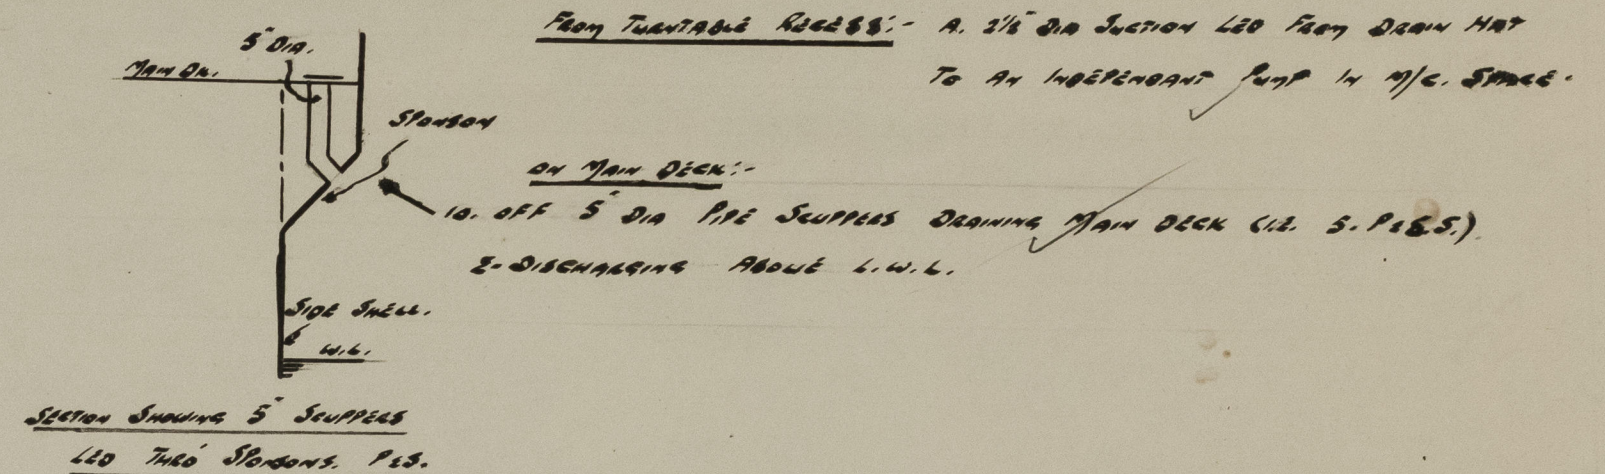 5" DIA.
MAIN DK.
SPONSON
SIDE SHELL.
W.L.
SECTION SHOWING 5" SCUPPERS
LED THRO' SPONSONS. P&S.
FROM TURNTABLE RECESS:- A. 2½" DIA SUCTION LED FROM DRAIN HAT
TO AN INDEPENDANT PUMP IN M/C. SPACE.
ON MAIN DECK:-
10. OFF 5" DIA PIPE SCUPPERS DRAINING MAIN DECK (I.E. 5. P&S.S.)
& DISCHARGING ABOVE L.W.L.